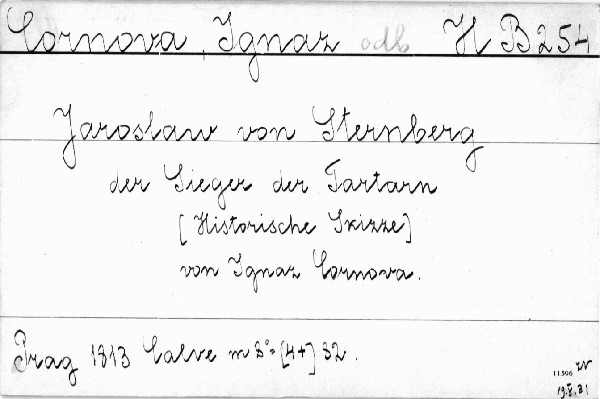 Cornova, Ignaz odb. H B 254
Jaroslaw von Sternberg
der Sieger der Tartarn
[Historische Skizze]
von Ignaz Cornova.
Prag 1813 Calve m 8°=[4+] 32.
11596
19.V.31